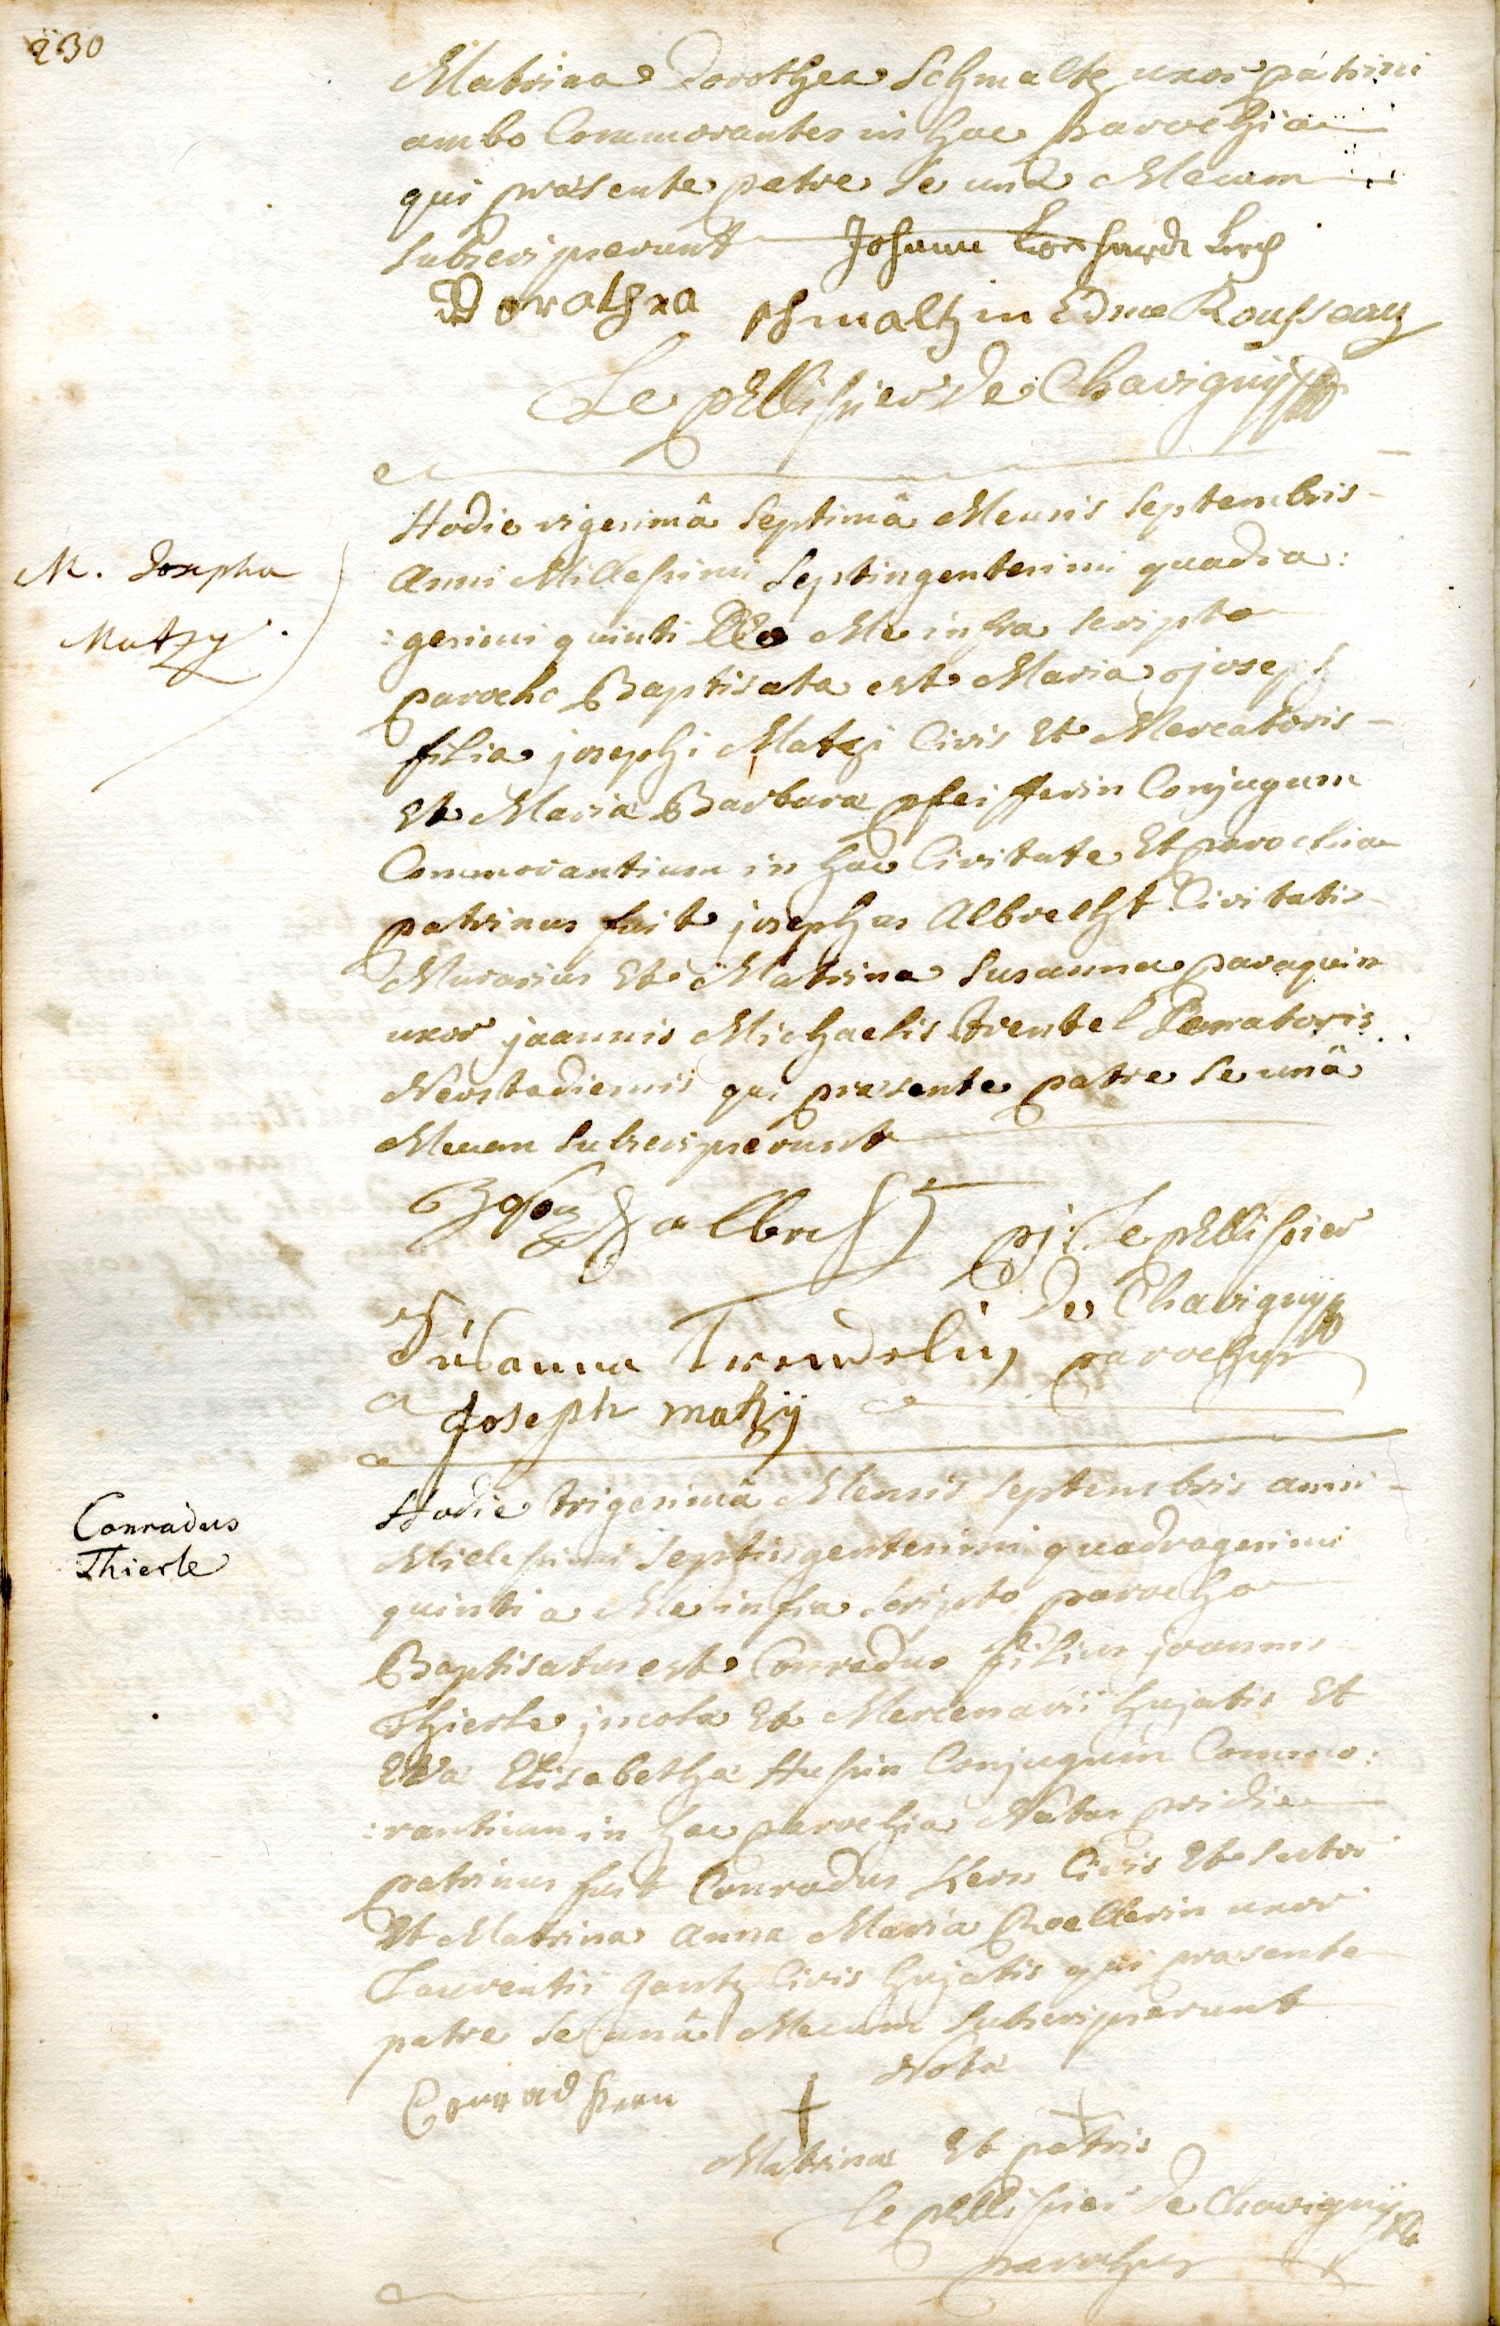 230
Matrina Dorothea Schmaltz uxor patrini
ambo Commorantes in hac parochia
qui præsente patre se unâ Mecum
subscripserunt Johann Leonhardt
Dorathea schmaltzin Edme Rousseau
Le pellissier de Chavignÿ
Hodie vigesimâ septimâ Mensis septembris
Anni Millesimi septingentesimi quadra:
M. Josepha
Matzy.
:gesimi quinti Me infra scripto
parocho Baptisata est Maria joseph
filia josephi Matzi Civis Et Mercatoris
Et Maria Barbara pfeifferin Conjugum
Commorantium in hac Civitate Et parochia
patrinus fuit josephus Albrecht Civitatis
Murarius Et Matrina susanna paraquin
uxor joannis Michaelis trentel
Neostadiensis qui præsente patre se unâ
Mecum subscripserunt
albrecht pj: Le pellissier
de Chavignÿ
Susanna Trendelin parochus
Joseph matzÿ
Conradus
Thierle
Hodie trigesimâ Mensis septembris anni
Millesimi septingentesimi quadragesimi
quinti a Me infra scripto parocho
Baptisatus est Conradus filius joannis
Thierle jncola Et Mercenarii hujatis Et
Eva Elisabetha Conjugum Commo:
:rantium in hac parochia Natus pridie
patrinus fuit Conradus Kern Civis Et sutor
Et Matrina anna Maria uxor
Laurentii gantz Civis hujatis qui præsente
patre se unâ Mecum subscripserunt
Nota
Conrad Kern
Matrina Et patris
le pellissier de Chavignÿ
parochus